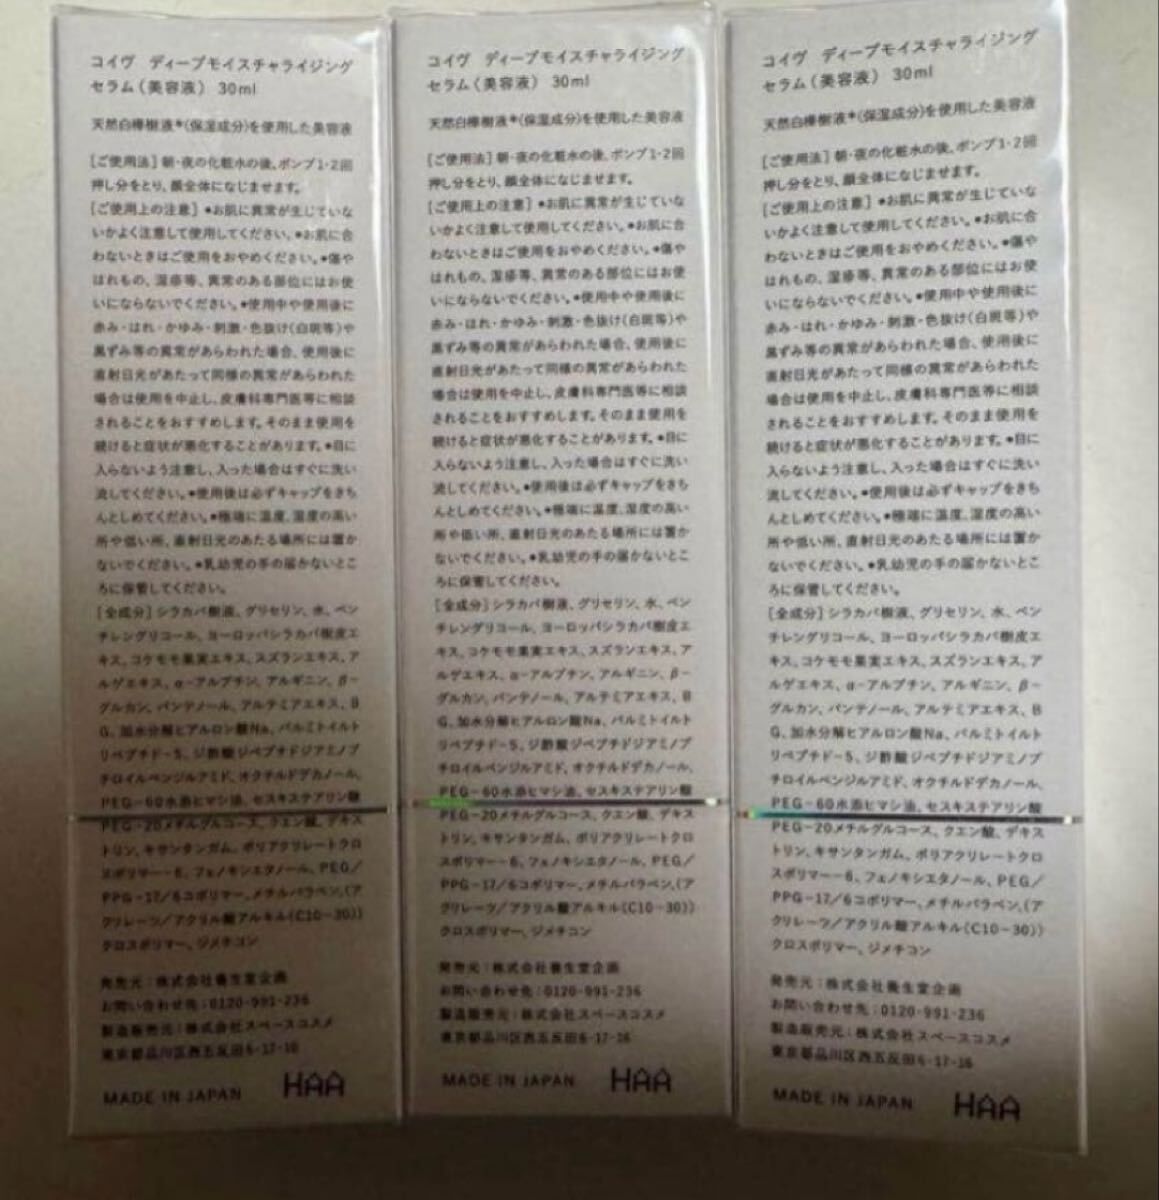 コイヴ ディープモイスチャライジング
セラム(美容液) 30ml
天然白樺樹液*(保湿成分)を使用した美容液
[ご使用法]朝・夜の化粧水の後、ポンプ1・2回
押し分をとり、顔全体になじませます。
[ご使用上の注意]●お肌に異常が生じていな
いかよく注意して使用してください。●お肌に合
わないときはご使用をおやめください。●傷や
はれもの、湿疹等、異常のある部位にはお使
いにならないでください。●使用中や使用後に
赤み・はれ・かゆみ・刺激・色抜け(白斑等)や
黒ずみ等の異常があらわれた場合、使用後に
直射日光があたって同様の異常があらわれた
場合は使用を中止し、皮膚科専門医等に相談
されることをおすすめします。そのまま使用を
続けると症状が悪化することがあります。●目に
入らないよう注意し、入った場合はすぐに洗い
流してください。●使用後は必ずキャップをきち
んとしめてください。●極端に温度、湿度の高い
所や低い所、直射日光のあたる場所には置か
ないでください。●乳幼児の手の届かないとこ
ろに保管してください。
[全成分]シラカバ樹液、グリセリン、水、ペン
チレングリコール、ヨーロッパシラカバ樹皮エ
キス、コケモモ果実エキス、スズランエキス、ア
ルゲエキス、α-アルブチン、アルギニン、β-
グルカン、パンテノール、アルテミアエキス、B
G、加水分解ヒアルロン酸Na、パルミトイルト
リペプチド-5、ジ酢酸ジペプチドジアミノブ
チロイルベンジルアミド、オクチルドデカノール、
PEG-60水添ヒマシ油、セスキステアリン酸
PEG-20メチルグルコース、クエン酸、デキス
トリン、キサンタンガム、ポリアクリレートクロ
スポリマー-6、フェノキシエタノール、PEG/
PPG-17/6コポリマー、メチルパラベン、(ア
クリレーツ/アクリル酸アルキル(C10-30))
クロスポリマー、ジメチコン
発売元:株式会社養生堂企画
お問い合わせ先:0120-991-236
製造販売元:株式会社スペースコスメ
東京都品川区西五反田6-17-16
MADE IN JAPAN HAA
コイヴ ディープモイスチャライジング
セラム(美容液) 30ml
天然白樺樹液*(保湿成分)を使用した美容液
[ご使用法]朝・夜の化粧水の後、ポンプ1・2回
押し分をとり、顔全体になじませます。
[ご使用上の注意]●お肌に異常が生じていな
いかよく注意して使用してください。●お肌に合
わないときはご使用をおやめください。●傷や
はれもの、湿疹等、異常のある部位にはお使
いにならないでください。●使用中や使用後に
赤み・はれ・かゆみ・刺激・色抜け(白斑等)や
黒ずみ等の異常があらわれた場合、使用後に
直射日光があたって同様の異常があらわれた
場合は使用を中止し、皮膚科専門医等に相談
されることをおすすめします。そのまま使用を
続けると症状が悪化することがあります。●目に
入らないよう注意し、入った場合はすぐに洗い
流してください。●使用後は必ずキャップをきち
んとしめてください。●極端に温度、湿度の高い
所や低い所、直射日光のあたる場所には置か
ないでください。●乳幼児の手の届かないとこ
ろに保管してください。
[全成分]シラカバ樹液、グリセリン、水、ペン
チレングリコール、ヨーロッパシラカバ樹皮エ
キス、コケモモ果実エキス、スズランエキス、ア
ルゲエキス、α-アルブチン、アルギニン、β-
グルカン、パンテノール、アルテミアエキス、B
G、加水分解ヒアルロン酸Na、パルミトイルト
リペプチド-5、ジ酢酸ジペプチドジアミノブ
チロイルベンジルアミド、オクチルドデカノール、
PEG-60水添ヒマシ油、セスキステアリン酸
PEG-20メチルグルコース、クエン酸、デキス
トリン、キサンタンガム、ポリアクリレートクロ
スポリマー-6、フェノキシエタノール、PEG/
PPG-17/6コポリマー、メチルパラベン、(ア
クリレーツ/アクリル酸アルキル(C10-30))
クロスポリマー、ジメチコン
発売元:株式会社養生堂企画
お問い合わせ先:0120-991-236
製造販売元:株式会社スペースコスメ
東京都品川区西五反田6-17-16
MADE IN JAPAN HAA
コイヴ ディープモイスチャライジング
セラム(美容液) 30ml
天然白樺樹液*(保湿成分)を使用した美容液
[ご使用法]朝・夜の化粧水の後、ポンプ1・2回
押し分をとり、顔全体になじませます。
[ご使用上の注意]●お肌に異常が生じていな
いかよく注意して使用してください。●お肌に合
わないときはご使用をおやめください。●傷や
はれもの、湿疹等、異常のある部位にはお使
いにならないでください。●使用中や使用後に
赤み・はれ・かゆみ・刺激・色抜け(白斑等)や
黒ずみ等の異常があらわれた場合、使用後に
直射日光があたって同様の異常があらわれた
場合は使用を中止し、皮膚科専門医等に相談
されることをおすすめします。そのまま使用を
続けると症状が悪化することがあります。●目に
入らないよう注意し、入った場合はすぐに洗い
流してください。●使用後は必ずキャップをきち
んとしめてください。●極端に温度、湿度の高い
所や低い所、直射日光のあたる場所には置か
ないでください。●乳幼児の手の届かないところ
に保管してください。
[全成分]シラカバ樹液、グリセリン、水、ペン
チレングリコール、ヨーロッパシラカバ樹皮エ
キス、コケモモ果実エキス、スズランエキス、ア
ルゲエキス、α-アルブチン、アルギニン、β-
グルカン、パンテノール、アルテミアエキス、B
G、加水分解ヒアルロン酸Na、パルミトイルト
リペプチド-5、ジ酢酸ジペプチドジアミノブ
チロイルベンジルアミド、オクチルドデカノール、
PEG-60水添ヒマシ油、セスキステアリン酸
PEG-20メチルグルコース、クエン酸、デキス
トリン、キサンタンガム、ポリアクリレートクロ
スポリマー-6、フェノキシエタノール、PEG/
PPG-17/6コポリマー、メチルパラベン、(ア
クリレーツ/アクリル酸アルキル(C10-30))
クロスポリマー、ジメチコン
発売元:株式会社養生堂企画
お問い合わせ先:0120-991-236
製造販売元:株式会社スペースコスメ
東京都品川区西五反田6-17-16
MADE IN JAPAN HAA